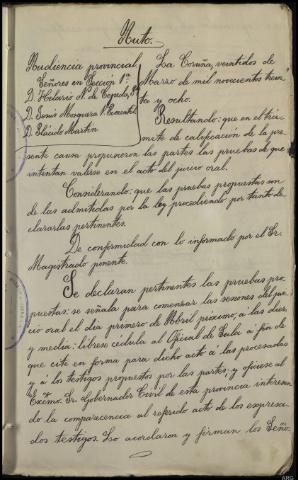 Auto.
Audiencia provincial
Señores en Sección 1ª
D. Hilario N. de Cepeda, Pte
D. Luis Mosquera P. Pimentel
D. Plácido Martin
La Coruña, veintidos de
Marzo de mil novecientos trein-
ta y ocho.
Resultando: que en el trá-
mite de calificación de la pre-
sente causa propusieron las partes las pruebas de que
intentan valerse en el acto del juicio oral.
Considerando: que las pruebas propuestas son
de las admitidas por la ley procediendo por tanto de-
clararlas pertinentes.
De conformidad con lo informado por el Sr.
Magistrado ponente.
Se declaran pertinentes las pruebas pro-
puestas: se señala para comenzar las sesiones del jui-
cio oral el dia primero de Abril próximo, a las diez
y media: librese cedula al Oficial de Sala a fin de
que cite en forma para dicho acto a los procesados
y a los testigos propuestos por las partes, y ofíciese al
Excmo. Sr. Gobernador Civil de esta provincia interesan
do la comparecencia al referido acto de los expresa-
dos testigos. Lo acordaron y firman los Seño-
ARG